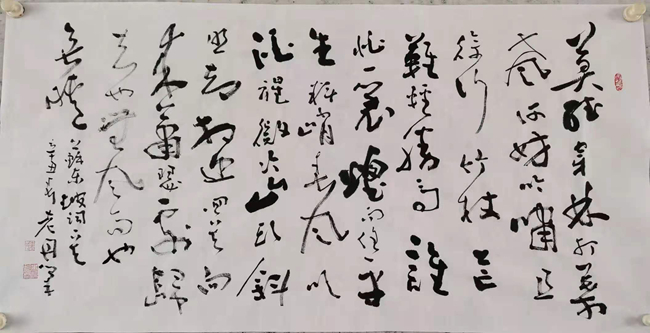 莫聽穿林打葉
聲何妨吟嘯且
徐行竹杖芒
鞋輕勝馬誰
怕一蓑煙雨任平
生料峭春風吹
酒醒微冷山頭斜
照却相迎回首向
來蕭瑟處歸
去也無風雨也
無晴
蘇東坡詞一首
辛丑